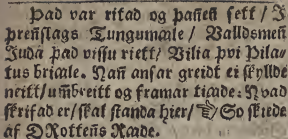 Þad var ritad og þañeñ sett / J
þreñslags Tungumæle / Valldsmeñ
Juda þad vissu riett / Vilia þvi Pila-
tus briæle. Nañ ansar greidt ei skyllde
neitt / umbreitt og framar tiæde. Hvad
skrifad er / skal standa hier / ☞ So skiede
af DRotteñs Ræde.